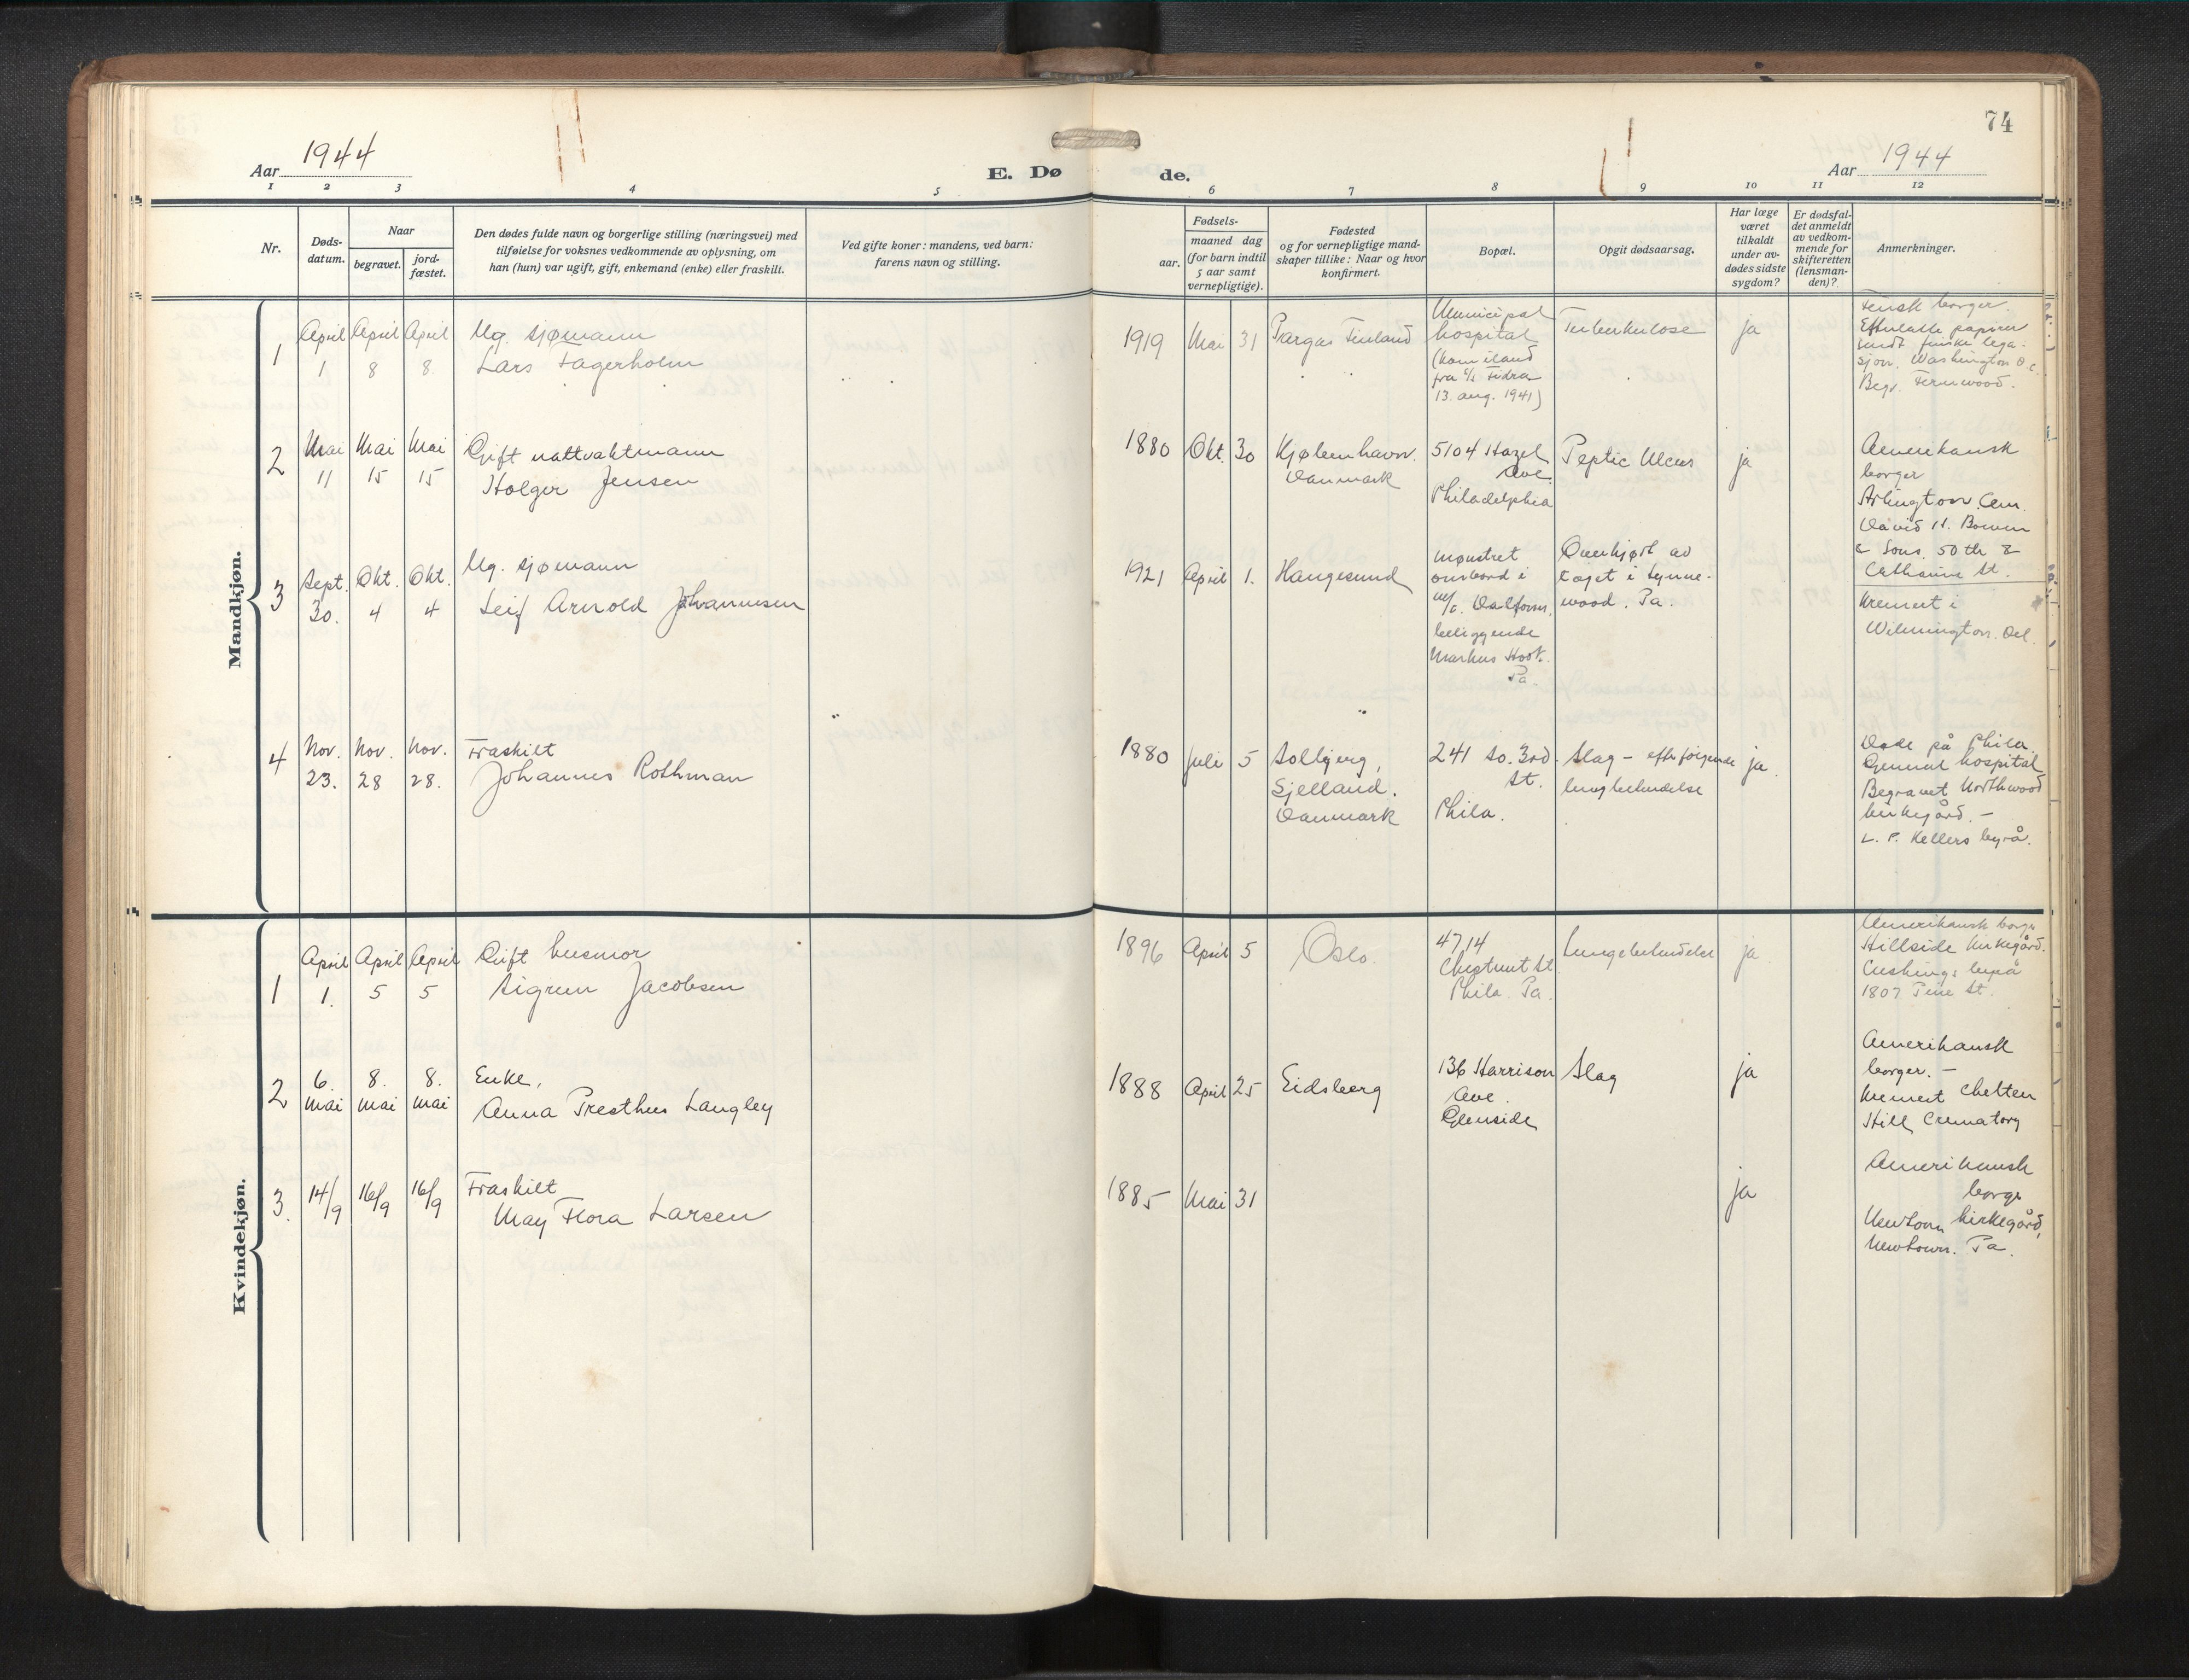 74
Aar 1944
E. Dø de.
Aar 1944
1 2 3 4 5 6 7 8 9 10 11 12
Nr.
Døds-
datum.
Naar
begravet.
jord-
fæstet.
Den dødes fulde navn og borgerlige stilling (næringsvei) med
tilføielse for voksnes vedkommende av oplysning, om
han (hun) var ugift, gift, enkemand (enke) eller fraskilt.
Ved gifte koner: mandens, ved barn:
farens navn og stilling.
Fødsels-
aar.
maaned dag
(for barn indtil
5 aar samt
vernepligtige).
Fødested
og for vernepligtige mand-
skaper tillike: Naar og hvor
konfirmert.
Bopæl.
Opgit dødsaarsag.
Har læge
været
tilkaldt
under av-
dødes sidste
sygdom?
Er dødsfal-
det anmeldt
av vedkom-
mende for
skifteretten
(lensman-
den)?
Anmerkninger.
Mandkjøn.
1
April
1
April
8
April
8.
Ug. sjømann
Lars Fagerholm
1919 Mai 31
Pargas Finland
Municipal
hospital
(kom iland
fra Fidra
13. aug. 1941)
Tuberkulose
ja
Finsk borger.
papirer
sendt finske lega-
sjon. Washington D.C.
Begr. Fernwood.
2
Mai
11
Mai
15
Mai
15
Gift nattvaktmann
Holger Jensen
1880 Okt. 30
Kjøbenhavn.
Danmark
5104 Hazel
Ave.
Philadelphia
Peptic Ulcus
ja
Amerikansk
borger
Arlington Cem.
David H. Bowen
& Sons. 50th &
Catharine St.
3
Sept.
30.
Okt.
4
Okt.
4
Ug. sjømann
Leif Arnold Johannesen
1921 April 1.
Haugesund
mønstret
ombord i
beliggende
Markus Hook.
Pa.
Overkjørt av
toget i Lynne-
wood. Pa.
Kremert i
Wilmington. Del.
4
Nov.
23.
Nov.
28
Nov.
28.
Fraskilt
Johannes Rothman
1880 Juli 5
Solbjerg,
Sjelland.
Danmark
241 So. 3rd
St.
Phila.
Slag – efterfølgende
lungbetendelse
ja.
Døde på Phila.
General hospital
Begravet Northwood
kirkegård. –
L. P. Kellers byrå.
Kvindekjøn.
1
April
1.
April
5
April
5
Gift husmor
Sigrun Jacobsen
1896 April 5
Oslo.
4714
Chestnut St.
Phila. Pa.
Lungebetendelse
ja
Amerikansk borger
Hillside kirkegård.
Cushings byrå
1807 Pine St.
2
6.
mai
8.
mai
8.
mai
Enke,
Anna Presthus Langley
1888 April 25
Eidsberg
136 Harrison
Ave.
Glenside
Slag
ja
Amerikansk
borger. –
Kremert Chelten
Hill Crematory
3.
14/9
16/9
16/9
Fraskilt
May Flora Larsen
1885 Mai 31
ja
Amerikansk
borger
Newtown kirkegård,
Newtown. Pa.